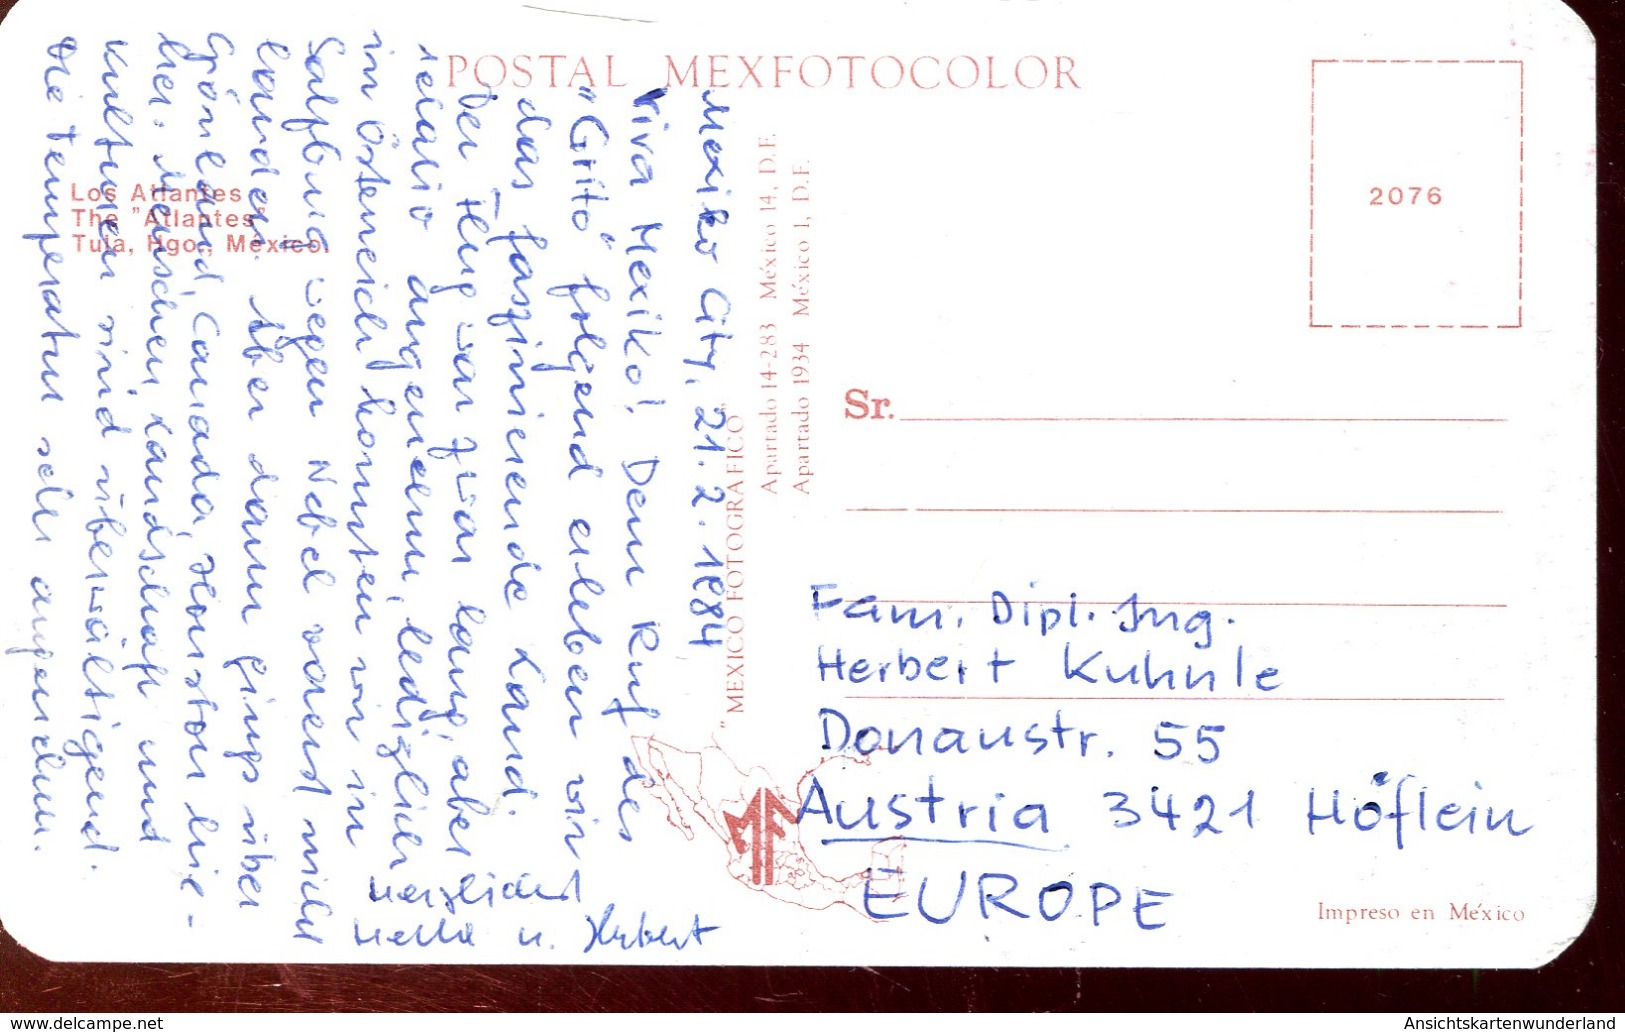 POSTAL MEXFOTOCOLOR
Mexiko City, 21.2.1984
Viva Mexiko! Dem Ruf des
"Grito" folgend erleben wir
das faszinierende Land.
Der Flug war zwar lang, aber
relativ angenehm, lediglich
in Österreich konnten wir in
Salzburg wegen Nebel vorerst nicht
landen. Aber dann gings über
Grönland, Canada, Houston hie-
her. Menschen, Landschaft und
Kulturen sind überwältigend.
Die Temperatur sehr angenehm.
Herzlichst
u. Herbert
Los Atlantes
The "Atlantes"
Tula, Hgo., México.
"MEXICO FOTOGRAFICO"
Apartado 14-283 México 14, D.F.
Apartado 1934 México 1, D.F.
2076
Sr.
Fam. Dipl. Ing.
Herbert Kuhnle
Donaustr. 55
Austria 3421 Höflein
EUROPE
Impreso en México
www.delcampe.net
Ansichtskartenwunderland